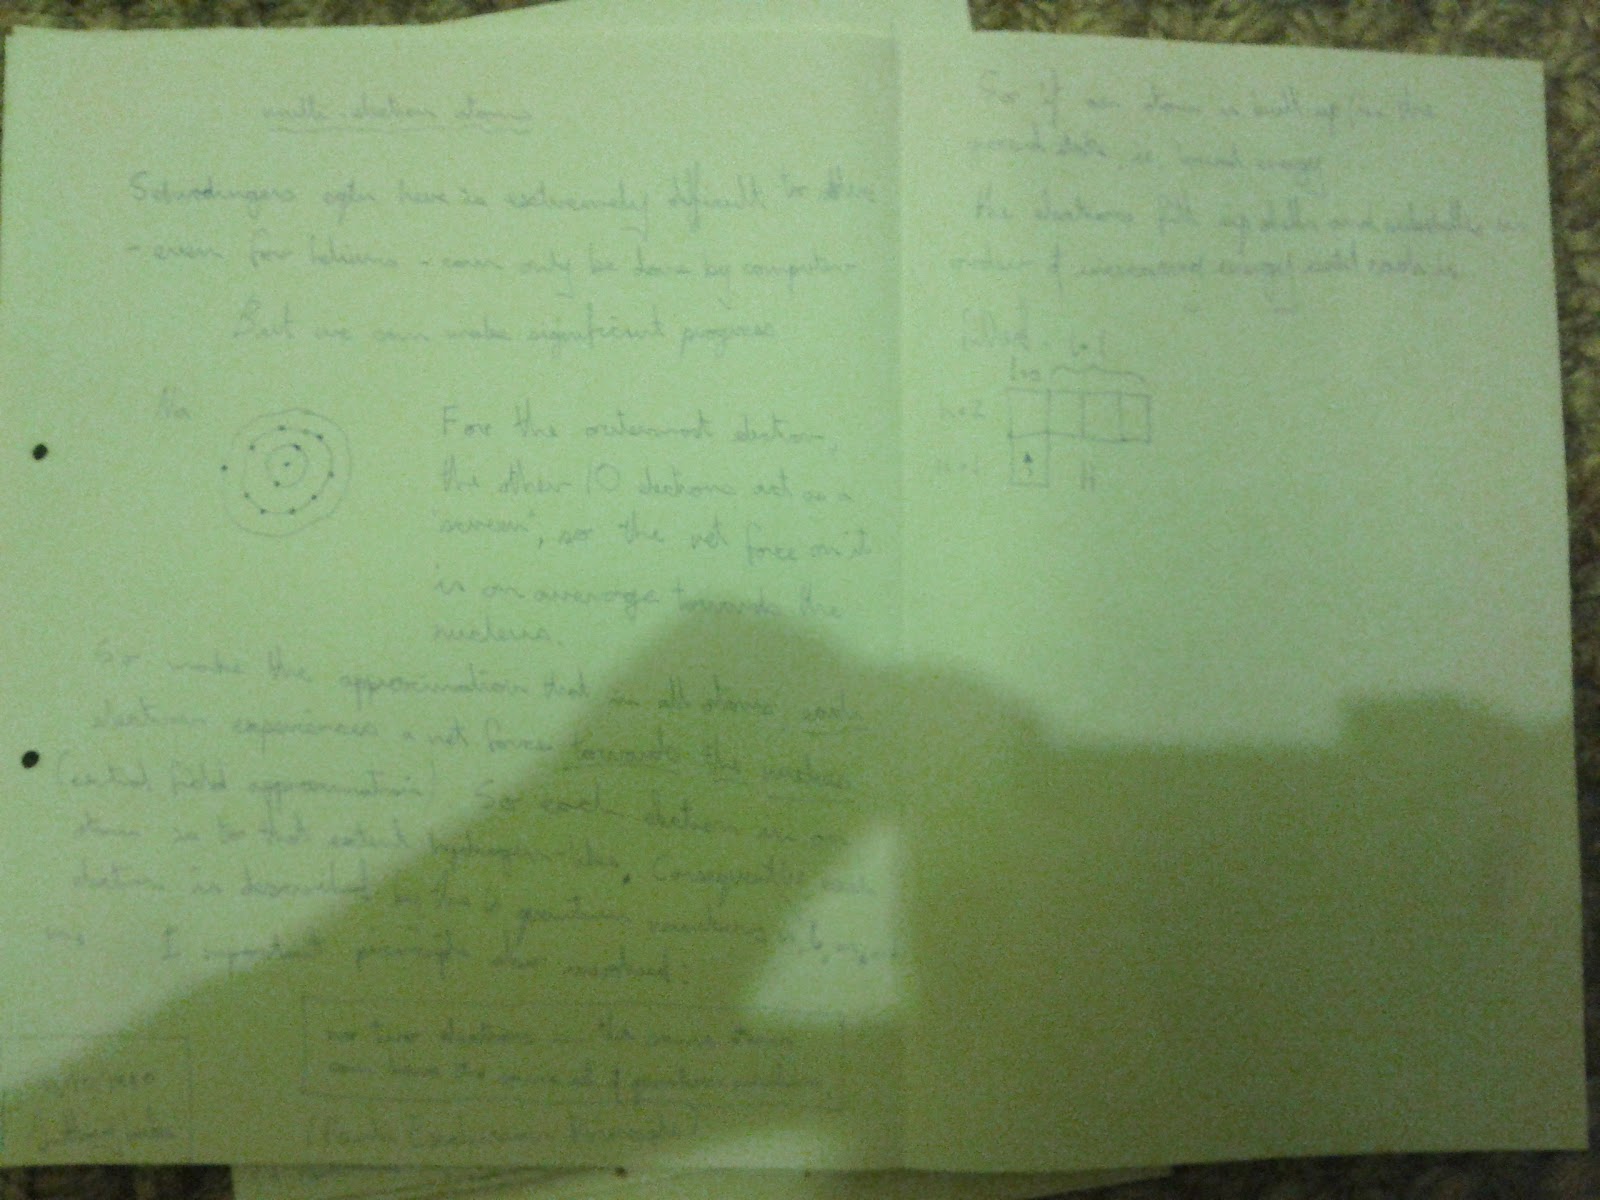 multi-electron atoms
Schrodingers eqtn here is extremely difficult to
- even for helium - can only be done by computer
But we can make significant progress
Na
For the outermost electron,
the other 10 electrons act as a
"screen", so the net force on it
is on average towards the
nucleus.
So make the approximation that in all atoms, each
electron experiences a net force towards the nucleus
(central field approximation) So each electron in an
atom is to that extent hydrogen-like. Consequently each
electron is described by the 4 quantum numbers
ms
important principle also involved:
no two electrons in the same atom
can have the same set of quantum numbers
(Pauli Exclusion Principle)
So if an atom is built up in the
state, ie, lowest energy
the electrons fill up shells and subshells in
order of increasing energy until each is
filled.
l=1
l=0
n=2
n=1
H